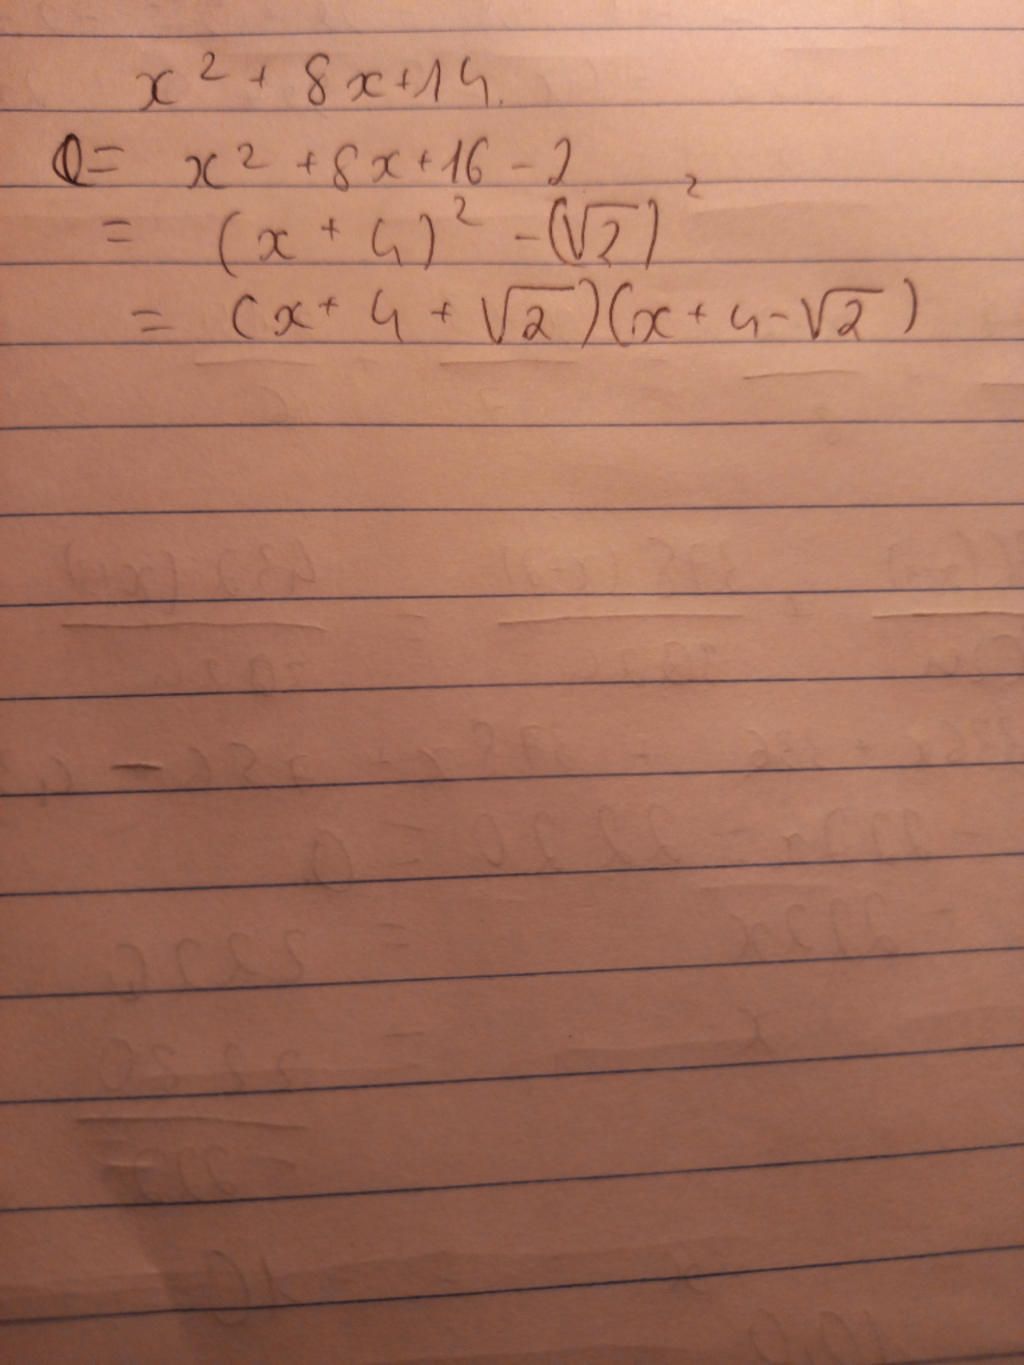 x² + 8x+14.
Q= x² +8x+16-2
= (x + 4)² -(√2)²
= (x+ 4 + √2)(x+4-√2)